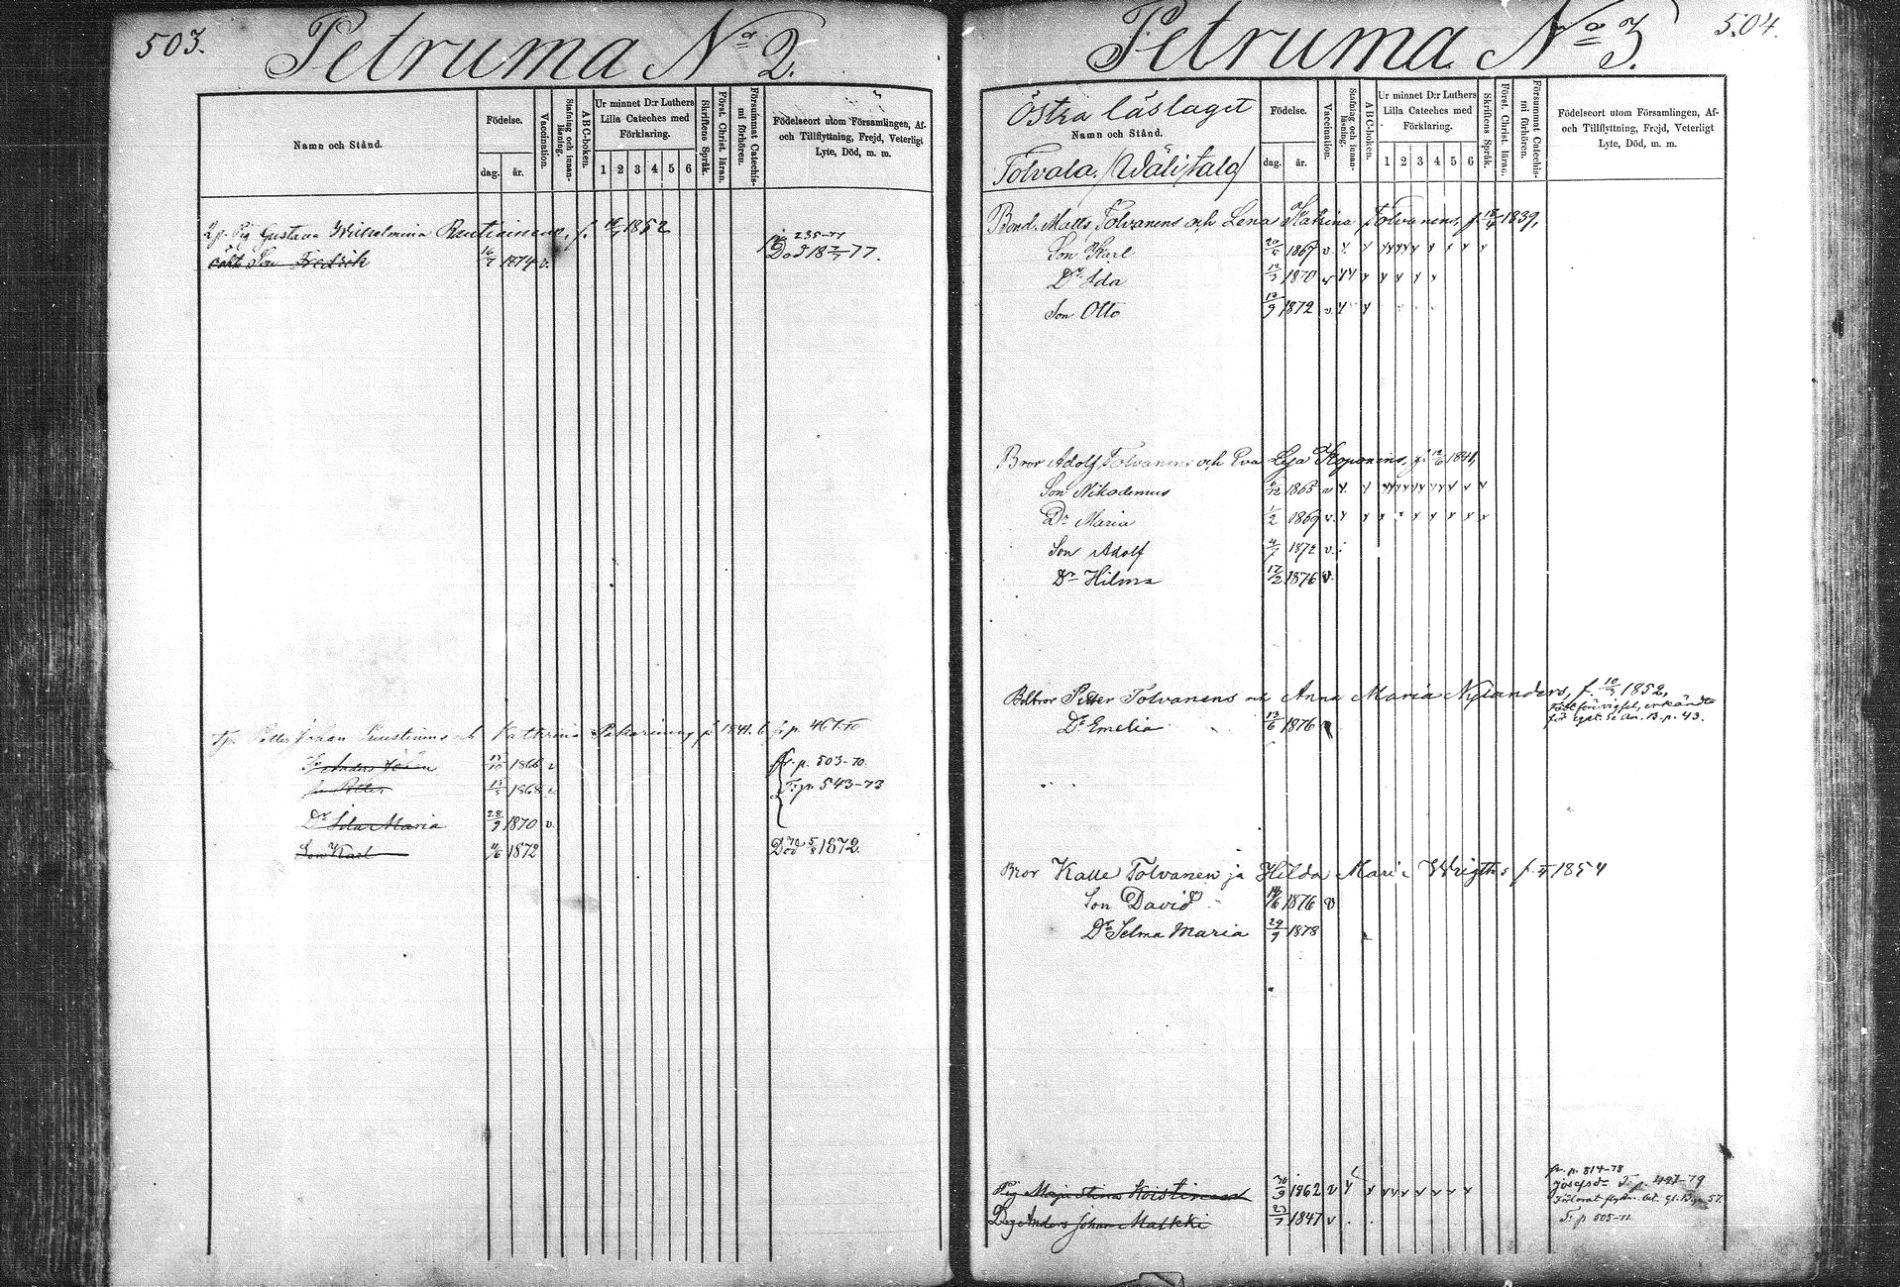 503.
Petruma No 2.
Namn och Stånd.
Födelse.
dag.
år.
Vaccination.
Stafning och innan-läsning.
ABC-boken.
Ur minnet D:r Luthers
Lilla Cateches med
Förklaring.
1 2 3 4 5 6
Skriftens Språk.
Först. Christ. läran.
Försummat Catechis-mi förhören.
Födelseort utom Församlingen, Af-
och Tillflyttning, Frejd, Veterligt
Lyte, Död, m. m.
Pig Gustava Wilhelmina Rautiainen, f. 1852
235-77
Son Fredrik 16/7 1874 v. Död 18 77.
Petter Johan och Kathrina f. 1841. fr p. 467
Anders Johan 1866 v fr. p. 503-70.
Petter 1868 v T. p. 543-73
Dr Ida Maria 28/9 1870 v.
Son Karl 1872 Död 1872.
504.
Petruma No 3.
Östra läslaget
Namn och Stånd.
Tolvala. (Wälitalo)
Födelse.
dag.
år.
Vaccination.
Stafning och innan-läsning.
ABC-boken.
Ur minnet D:r Luthers
Lilla Cateches med
Förklaring.
1 2 3 4 5 6
Skriftens Språk.
Först. Christ. läran.
Försummat Catechis-mi förhören.
Födelseort utom Församlingen, Af-
och Tillflyttning, Frejd, Veterligt
Lyte, Död, m. m.
Bond. Matts Tolvanens och Lena Katrina Tolvanens, f. 1839,
Son Karl 1867 v
Dr Ida 1870 v
Son Otto 1872 v
Bror Adolf Tolvanens och Eva Lisa Koponens, f. 1841,
Son Nikodemus 1865 v
Dr Maria 1/2 1869 v.
Son Adolf 1872 v.
Dr Hilma 17/2 1876 v.
Petter Tolvanens och Anna Maria Nylanders, f. 10 1852,
född före vigsel, erkändt
Dr Emelia 13/6 1876 v för eget. Se An. B. p. 43.
Bror Kalle Tolvanen ja Hilda Maria Wrigths f. 1854
Son David 1876 v
Dr Selma Maria 29/9 1878
fr. p. 814-78
Pig Maja Stina Koistinen 30/9 1862 v T. p. 497-79
Anders Johan Malkki 23/7 1847 v
T. p 505-71